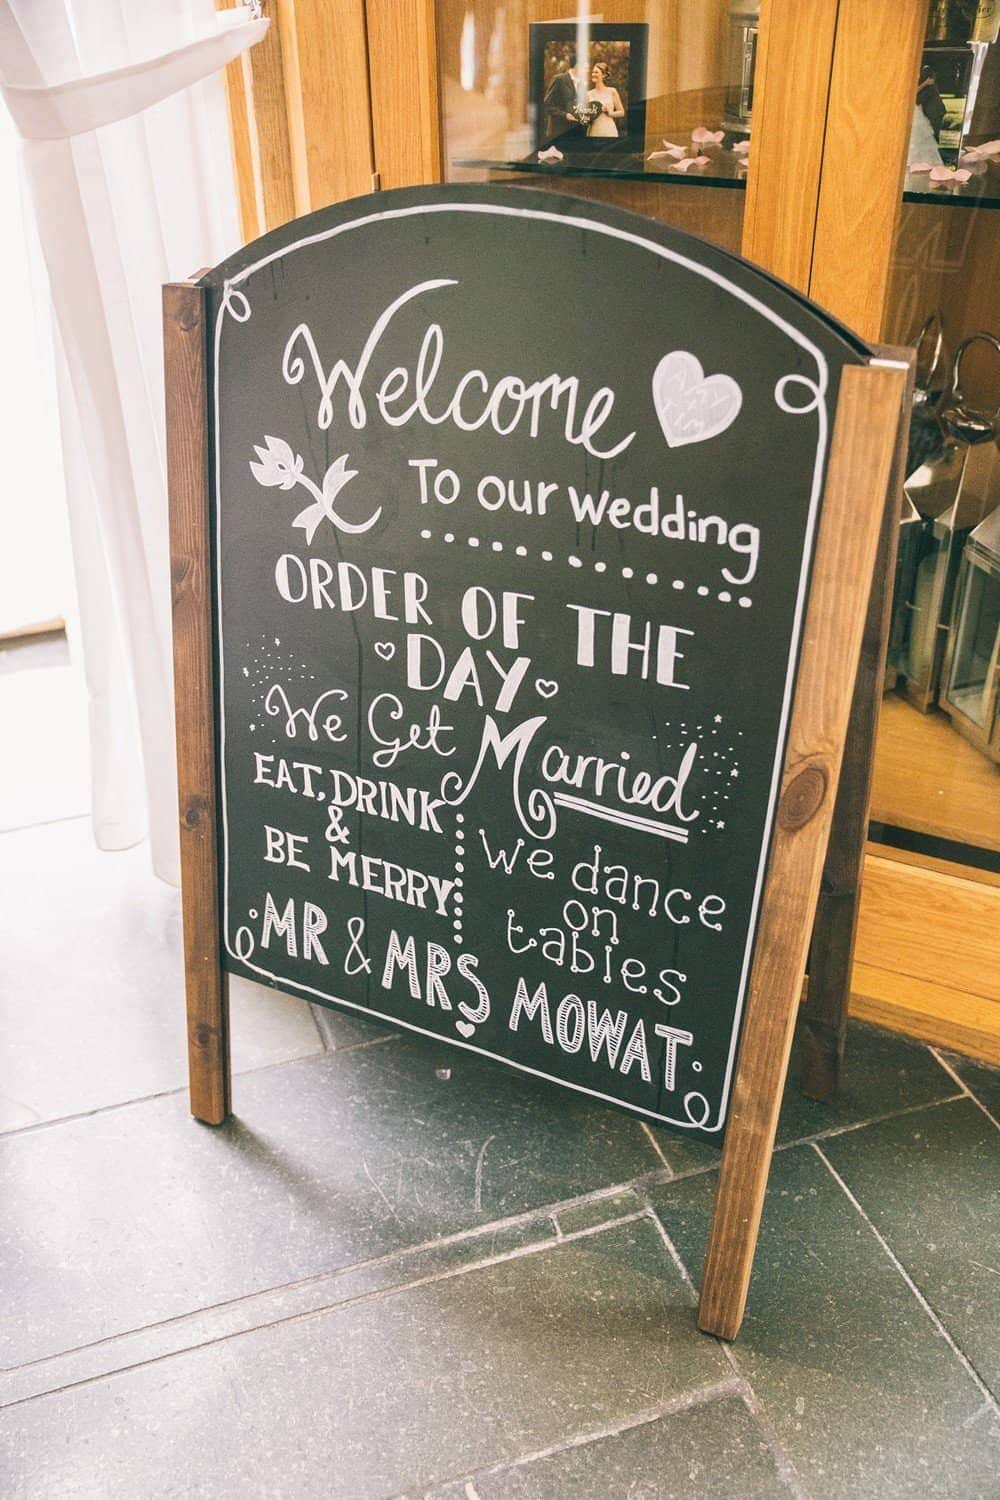 Welcome
To our wedding
ORDER OF THE
DAY
We Get Married
EAT, DRINK
&
BE MERRY
We dance
on
tables
MR & MRS MOWAT